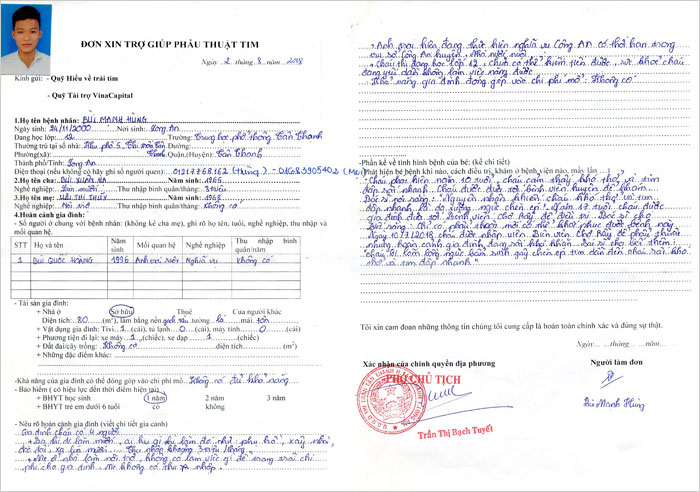 ĐƠN XIN TRỢ GIÚP PHẪU THUẬT TIM
Ngày 2 tháng 8 năm 2018
Kính gửi: - Quỹ Hiểu về trái tim
- Quỹ Tài trợ VinaCapital
1.Họ tên bệnh nhân: BÙI MẠNH HÙNG
Ngày sinh: 24/11/2000 Nơi sinh: Long An
Đang học lớp: 12 Trường: Trung học phổ thông Tân Thạnh
Thường trú tại số nhà: Khu phố 5, Thị trấn
Phường(xã): Thạnh Quận,(Huyện): Tân Thạnh
Thành phố/Tỉnh: Long An
Điện thoại (nếu không có hãy ghi số người quen): (Hùng) - (Mẹ)
2.Họ tên cha: BÙI XUÂN HÀ Năm sinh: 1968
Nghề nghiệp: Làm mướn Thu nhập bình quân/tháng: 3 triệu
3.Họ tên mẹ: THỊ THỦY Năm sinh: 1968
Nghề nghiệp: Nội trợ Thu nhập bình quân/tháng: Không có
4.Hoàn cảnh gia đình:
- Số người ở chung với bệnh nhân: (không kể cha mẹ), ghi rõ họ tên, tuổi, nghề nghiệp, thu nhập và
mối quan hệ.
STT Họ và tên Năm sinh Mối quan hệ Nghề nghiệp Thu nhập bình quân/năm
1 Bùi Quốc Hoàng 1996 Anh trai ruột Nghĩa vụ Không có
- Tài sản gia đình:
+ Nhà ở Sở hữu Thuê Của người khác
Diện tích: 80 (m²), làm bằng nền gạch tàu tường lá mái tôn
+ Vật dụng gia đình: Tivi 1 (cái), tủ lạnh 0 (cái), máy tính 0 (cái)
+ Phương tiện đi lại: xe máy 1 (chiếc), xe đạp 1 (chiếc)
+ Đất đai/cây trồng: Không có diện tích (m²)
+ Những đặc điểm khác:
-Khả năng của gia đình có thể đóng góp vào chi phí mổ: Không có đủ khả năng
- Bảo hiểm ( có hiệu lực đến thời điểm hiện tại)
+ BHYT học sinh 1 năm 2 năm 3 năm
+ BHYT trẻ em dưới 6 tuổi có không
- Nêu rõ hoàn cảnh gia đình (viết chi tiết gia cảnh)
Gia đình cháu có 4 người
+ Ba thì đi làm mướn, ai kêu gì thì làm đó như phụ hồ, xây nhà,
xạ lúa mướn Thu nhập khoảng 3 triệu/tháng
+ Mẹ ở nhà làm nội trợ, không có làm việc gì để trang trải chi
phí cho gia đình. Mẹ không có thu nhập.
+ Anh trai hiện đang thực hiện nghĩa vụ Công An có thời hạn trong
Công An huyện Nhà nước nuôi
+ Cháu thì đang học lớp 12, chưa có thể kiếm tiền được, sức khỏe cháu
đang yếu dần không làm việc nặng được
Khả năng gia đình đóng góp vào chi phí mổ: Không có
-Phần kể về tình hình bệnh của bé: (kể chi tiết)
(Phát hiện bệnh khi nào, cách điều trị, khám ở bệnh viện nào, mấy lần....)
Cháu phát hiện năm 10 tuổi, cháu cảm thấy khó thở, và tim
đập rất nhanh. Cháu được đưa tới bệnh viện huyện để khám.
Bác sĩ nói rằng: "Nguyên nhân khiến cháu khó thở và tim
đập nhanh là do lồng ngực chèn ép". Năm 17 tuổi cháu được
gia đình đưa tới Bệnh viện Chợ Rẫy để điều trị. Bác sĩ cho
rằng: Chỉ có phẫu thuật mới có thể khắc phục được bệnh này.
Ngày 10/7/2018 cháu được nhập viện. Bệnh viện Chợ Rẫy để phẫu thuật
nhưng hoàn cảnh gia đình đang rất khó khăn. Bác sĩ cho biết thêm:
"cháu bị lõm lồng ngực bẩm sinh gây chèn ép tim dẫn đến cháu rất khó
thở và tim đập nhanh."
Tôi xin cam đoan những thông tin chúng tôi cung cấp là hoàn toàn chính xác và đúng sự thật.
Ngày... tháng... năm...
Xác nhận của chính quyền địa phương
Người làm đơn
PHÓ CHỦ TỊCH
Bùi Mạnh Hùng
Trần Thị Bạch Tuyết